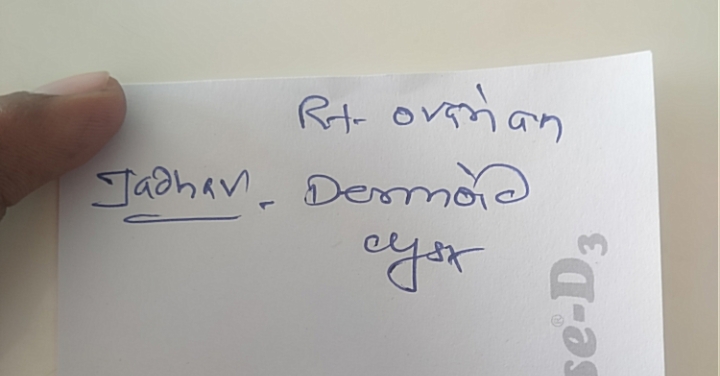 Rt. ovarian
Jadhav. Dermoid
cyst
se®-D3